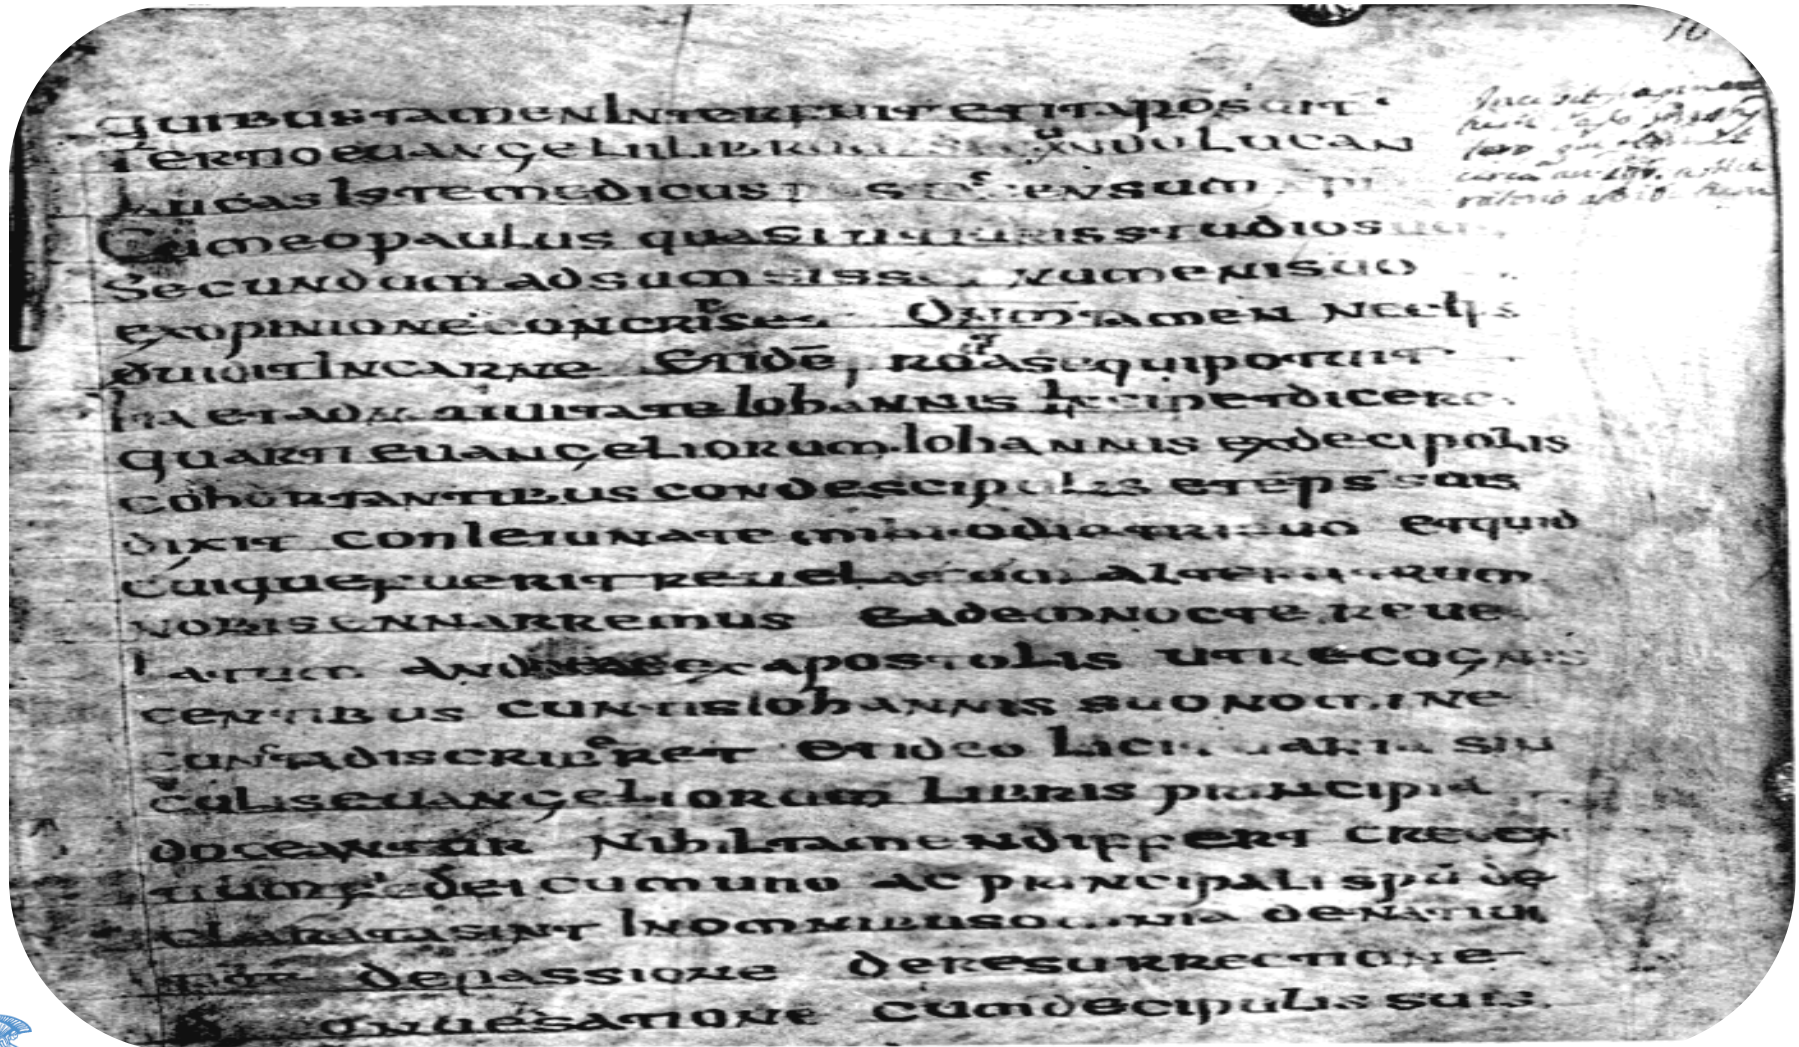 quibus tamen Interfuit et ita posuit
Tertio euangelii librum secundo Lucan
Lucas Iste medicus post ascensum xpi
Cum eo paulus quasi ut iuris studiosum
Secundum adsumsisset numeni suo
ex opinione concriset dnm tamen nec ipse
duidit In carne et ide prout asequi potuit
Ita et ad natiuitate Iohannis Incipet dicere
quarti euangeliorum Iohannis ex decipolis
cohortantibus condescipulis et eps suis
dixit conIeiunate mihi odie triduo et quid
cuique fuerit reuelatum alterutrum
nobis ennarremus eadem nocte reue
latum andreae ex apostolis ut recognis
centibus cuntis Iohannis suo nomine
cuncta discriberet et ideo licit uaria sin
culis euangeliorum libris principia
doceantur Nihil tamen differt creden
tium fedei cum uno ac principali spu de
clarata sint In omnibus omnia de natiui
tate de passione de resurrectione
conuesatione cum decipulis suis